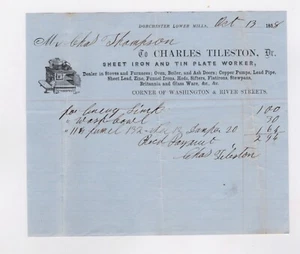 DORCHESTER LOWER MILLS, Oct 13 1858
Mr Chas Thompson
To CHARLES TILESTON, Dr.
SHEET IRON AND TIN PLATE WORKER,
Dealer in Stoves and Furnaces; Oven, Boiler, and Ash Doors; Copper Pumps, Lead Pipe,
Sheet Lead, Zinc, Funnel Irons, Hods, Sifters, Flatirons, Stewpans,
Britannia and Glass Ware, &c. &c.
CORNER OF WASHINGTON & RIVER STREETS.
for Sink 1 00
30
funnel 20 1 64
Recd Payment 2 94
Chas Tileston